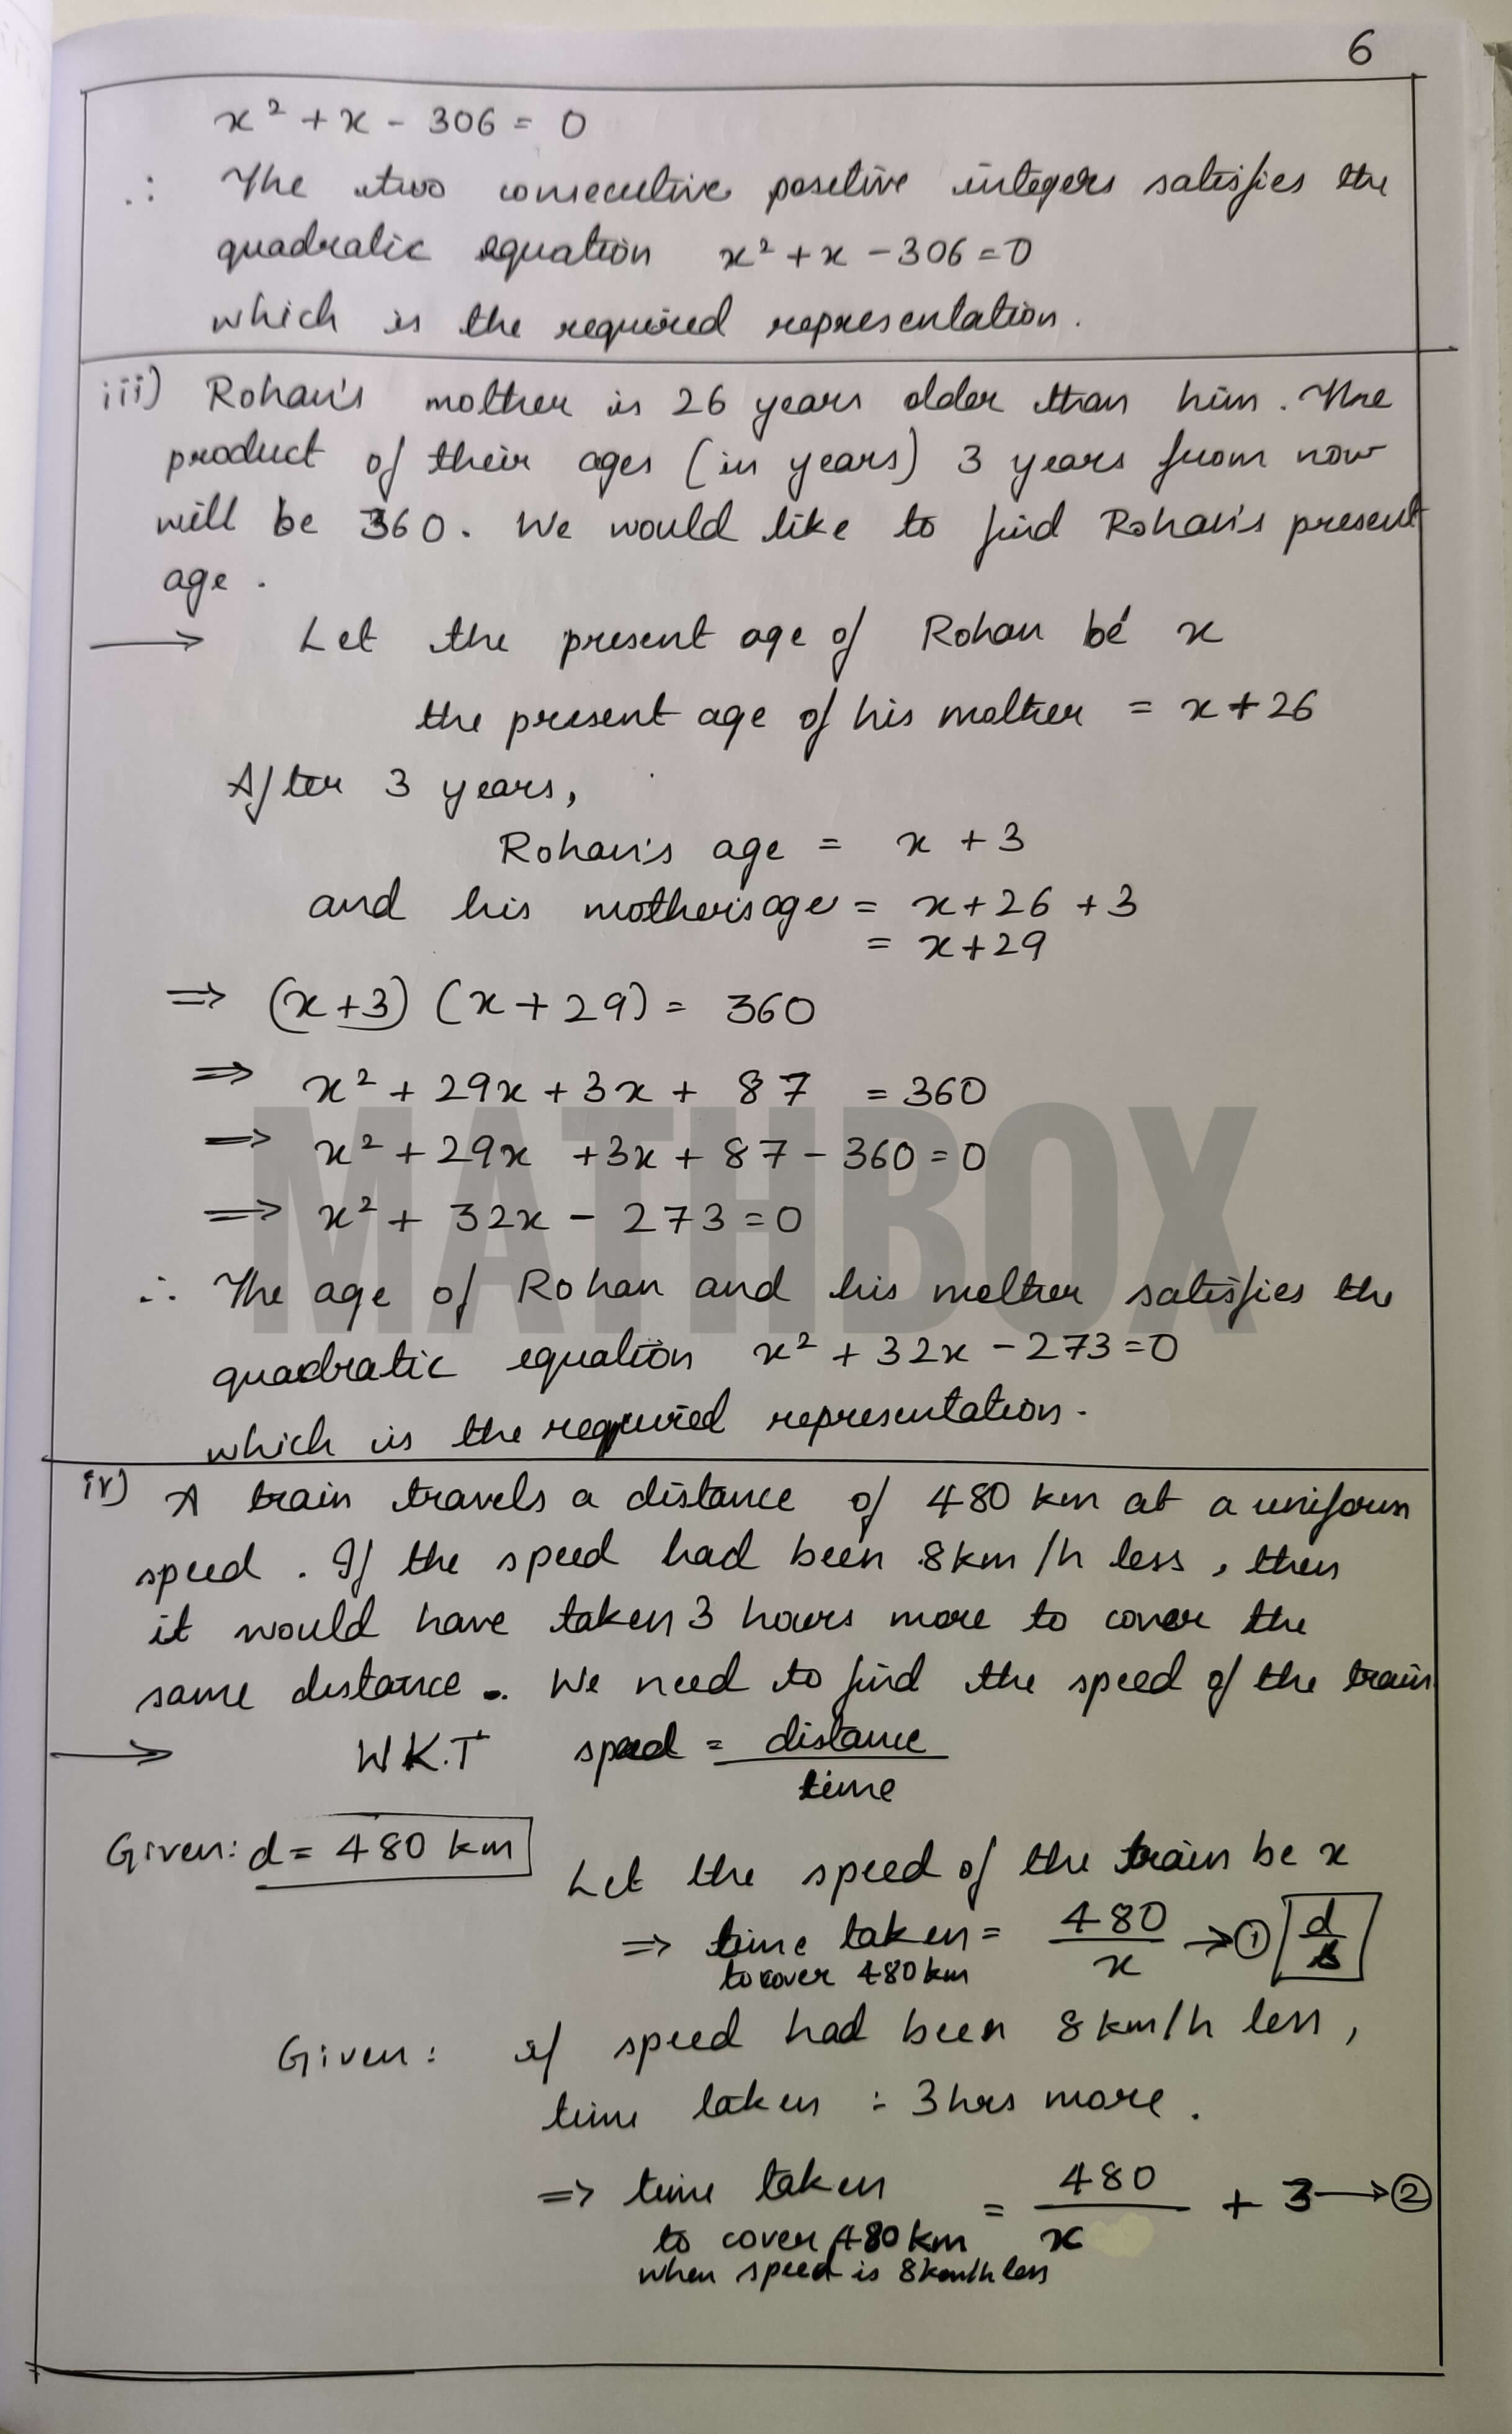 6
x² + x - 306 = 0
∴ The two consecutive positive integers satisfies the
quadratic equation x² + x - 306 = 0
which is the required representation.
iii) Rohan's mother is 26 years older than him. The
product of their ages (in years) 3 years from now
will be 360. We would like to find Rohan's present
age.
→ Let the present age of Rohan be x
the present age of his mother = x + 26
After 3 years,
Rohan's age = x + 3
and his mother's age = x + 26 + 3
= x + 29
⇒ (x+3) (x + 29) = 360
⇒ x² + 29x + 3x + 87 = 360
⇒ x² + 29x + 3x + 87 - 360 = 0
⇒ x² + 32x - 273 = 0
MATHBOX
∴ The age of Rohan and his mother satisfies the
quadratic equation x² + 32x - 273 = 0
which is the required representation.
iv) A train travels a distance of 480 km at a uniform
speed. If the speed had been 8km/h less, then
it would have taken 3 hours more to cover the
same distance. We need to find the speed of the train
→ W.K.T speed = distance / time
Given: d = 480 km
Let the speed of the train be x
⇒ time taken = 480 / x → ① d / s
to cover 480 km
Given: if speed had been 8 km/h less,
time taken : 3 hrs more.
⇒ time taken = 480 / x + 3 → ②
to cover 480 km
when speed is 8km/h less